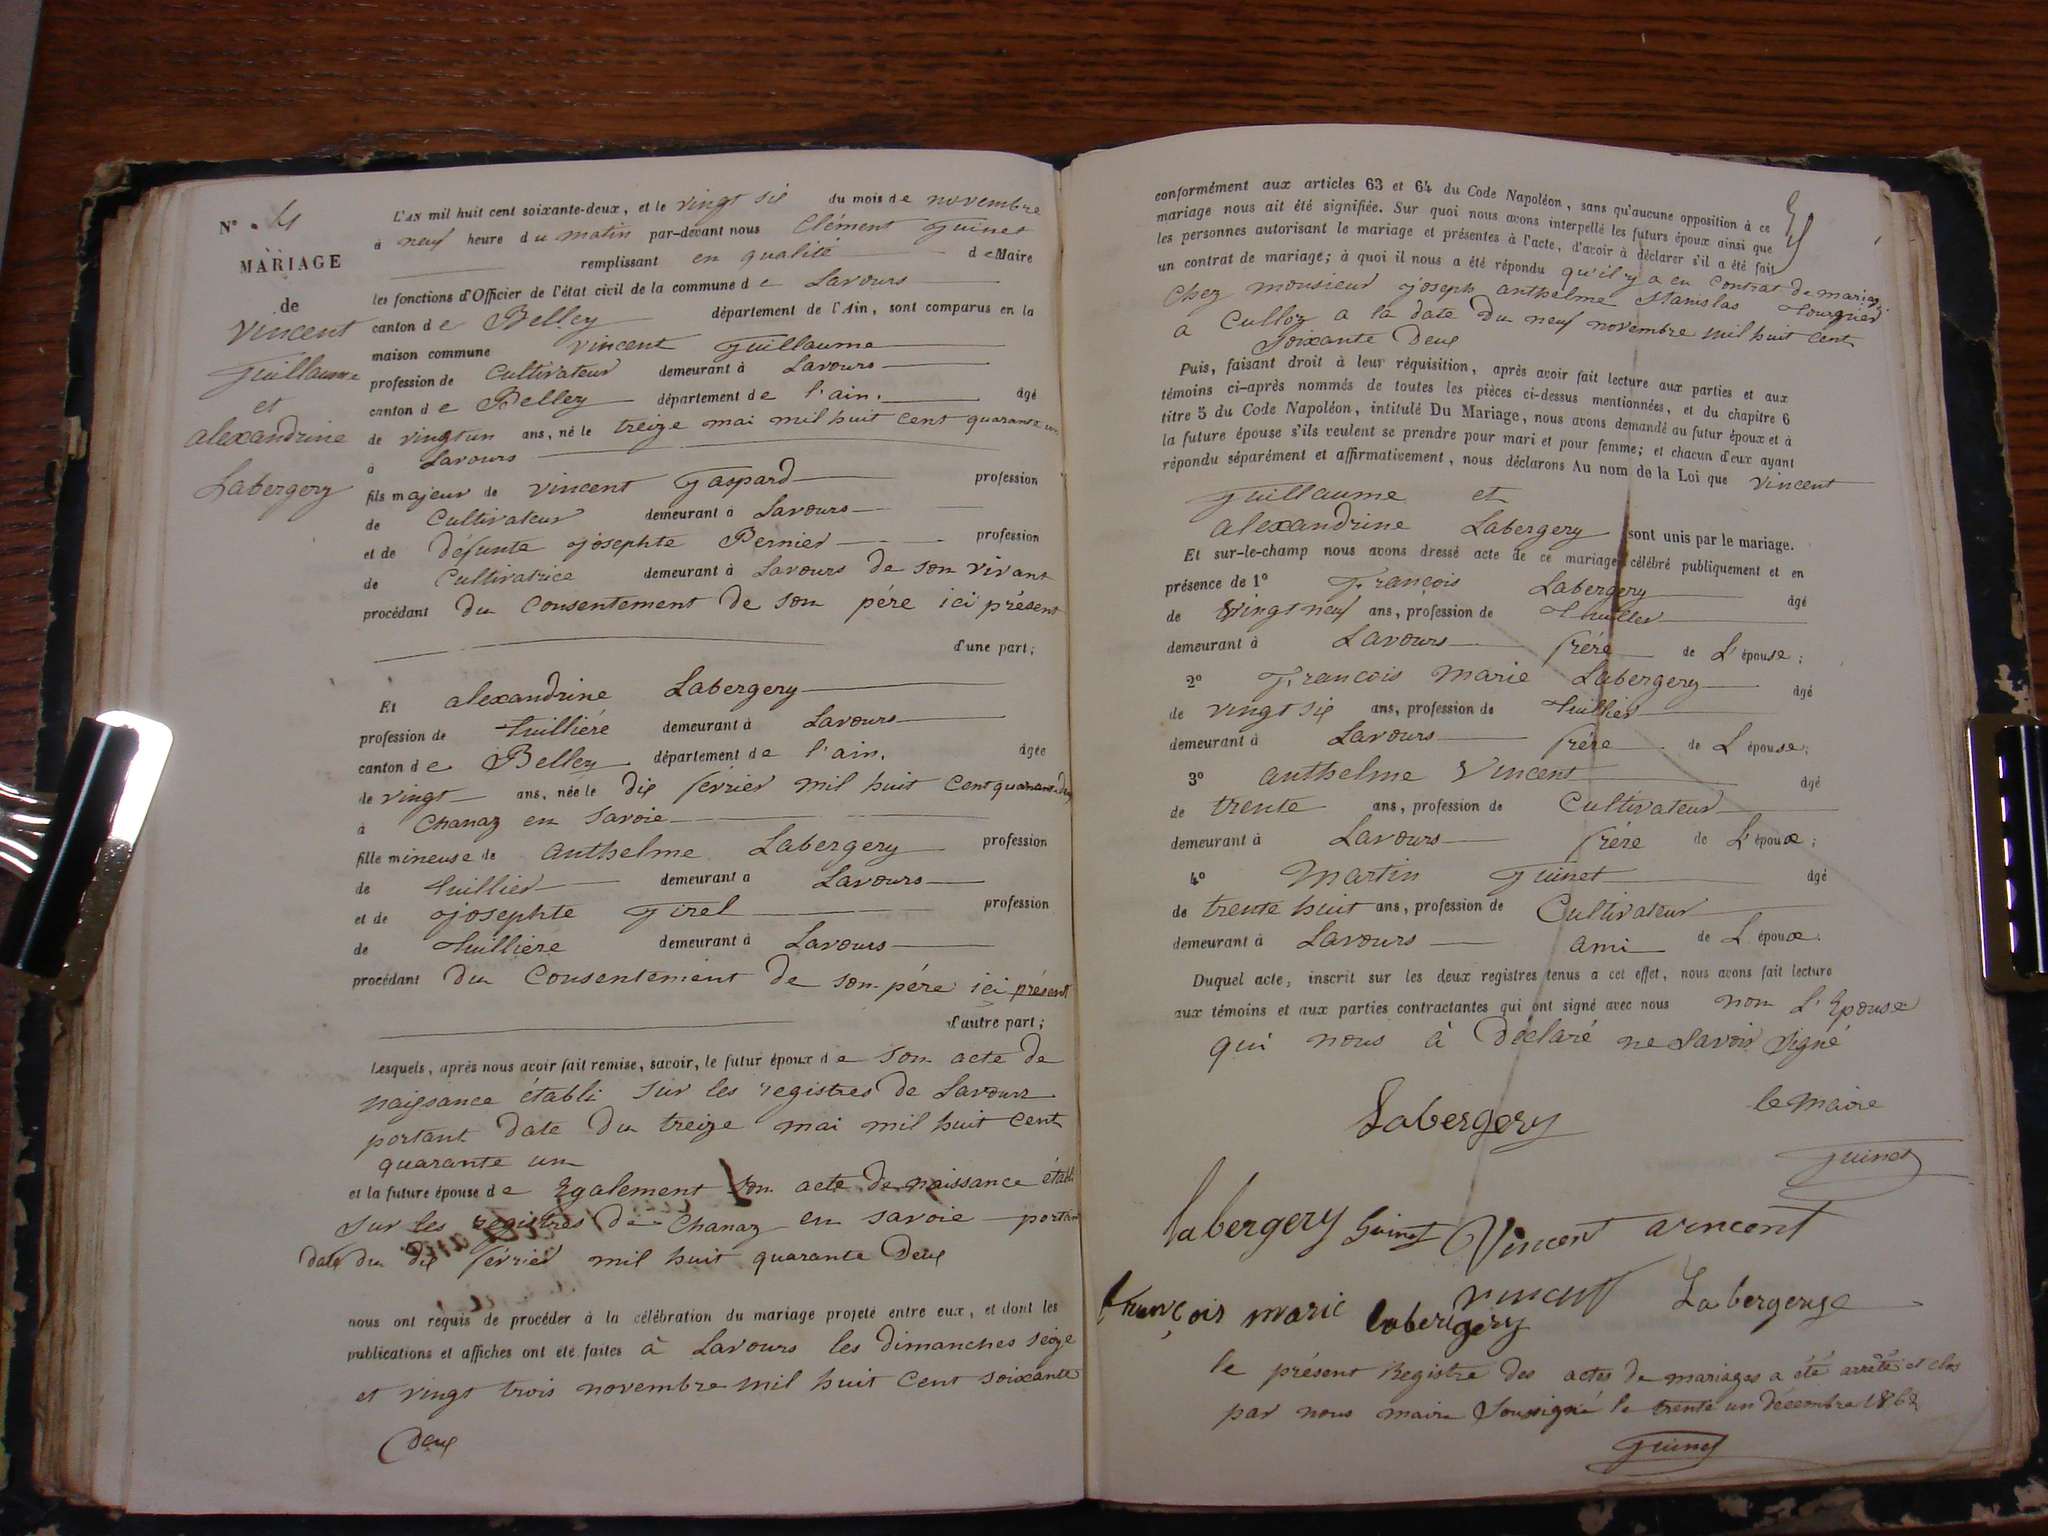 N° 4
MARIAGE
de
Vincent
Guillaume
et
alexandrine
Labergery
L'AN mil huit cent soixante-deux, et le vingt six du mois de novembre
à neuf heure du matin par-devant nous Clément Guinet
remplissant en qualité de Maire
les fonctions d'Officier de l'état civil de la commune de Lavours
canton de Belley département de l'Ain, sont comparus en la
maison commune Vincent Guillaume
profession de Cultivateur demeurant à Lavours
canton de Belley département de l'ain. âgé
de vingt un ans, né le treize mai mil huit cent quarante un
à Lavours
fils majeur de Vincent Gaspard profession
de Cultivateur demeurant à Lavours
et de défunte josephte Pernier profession
de Cultivatrice demeurant à Lavours de son vivant
procédant du Consentement de son pére ici présent
d'une part;
Et alexandrine Labergery
profession de thuilliére demeurant à Lavours
canton de Belley département de l'ain. âgée
de vingt ans, née le dix février mil huit cent quarante deux
à Chanaz en Savoie
fille mineuse de anthelme Labergery profession
de thuillier demeurant à Lavours
et de josephte Girel profession
de thuilliere demeurant à Lavours
procédant du Consentement de son pére ici présent
d'autre part;
Lesquels, après nous avoir fait remise, savoir, le futur époux de son acte de
naissance établi sur les registres de Lavours
portant date du treize mai mil huit cent
quarante un
et la future épouse de Egalement son acte de naissance établi
sur les registres de Chanaz en savoie portan
date du dix février mil huit quarante deux
nous ont requis de procéder à la célébration du mariage projeté entre eux, et dont les
publications et affiches ont été faites à Lavours les dimanches seize
et vingt trois novembre mil huit cent soixante
Deux
conformément aux articles 63 et 64 du Code Napoléon, sans qu'aucune opposition à ce
mariage nous ait été signifiée. Sur quoi nous avons interpellé les futurs époux ainsi que
les personnes autorisant le mariage et présentes à l'acte, d'avoir à déclarer s'il a été fait
un contrat de mariage; à quoi il nous a été répondu qu'il y a eu Contrat de mariage
Chez monsieur joseph anthelme Stanislas
a Culloz a la date du neuf novembre mil huit cent
soixante Deux
Puis, faisant droit à leur réquisition, après avoir fait lecture aux parties et aux
témoins ci-après nommés de toutes les pièces ci-dessus mentionnées, et du chapitre 6
titre 5 du Code Napoléon, intitulé Du Mariage, nous avons demandé au futur époux et à
la future épouse s'ils veulent se prendre pour mari et pour femme; et chacun d'eux ayant
répondu séparément et affirmativement, nous déclarons Au nom de la Loi que Vincent
Guillaume et
alexandrine Labergery sont unis par le mariage.
Et sur-le-champ nous avons dressé acte de ce mariage célébré publiquement et en
présence de 1° François Labergery âgé
de Vingt neuf ans, profession de thuillier
demeurant à Lavours frére de L'épouse;
2° François Marie Labergery âgé
de vingt six ans, profession de thuillier
demeurant à Lavours frére de L'épouse;
3° anthelme Vincent âgé
de trente ans, profession de Cultivateur
demeurant à Lavours frére de L'époux;
4° Martin Guinet âgé
de trente huit ans, profession de Cultivateur
demeurant à Lavours ami de L'époux.
Duquel acte, inscrit sur les deux registres tenus à cet effet, nous avons fait lecture
aux témoins et aux parties contractantes qui ont signé avec nous non L'Epouse
qui nous à Déclaré ne savoir signé
Labergery le maire
Guinet
labergery Guinet Vincent vincent
vincent
françois marie labergery Labergery
le présent Registre des actes de mariages a été arrêté et clos
par nous maire soussigné le trente un décembre 1862
Guinet